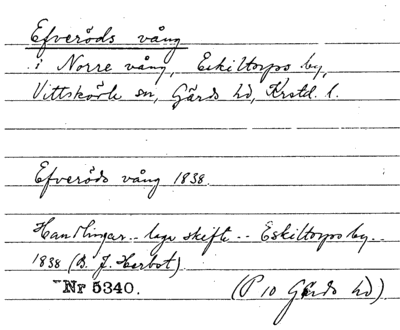 Efveröds vång
i Norre vång, Eskiltorps by,
Vittskövle sn, Gärds hd, Krstd. l.
Efveröds vång 1838.
Handlingar.. laga skifte.. Eskiltorps by..
1838 (B. J. Herbst)
Nr 5340. (P 10 Gärds hd).